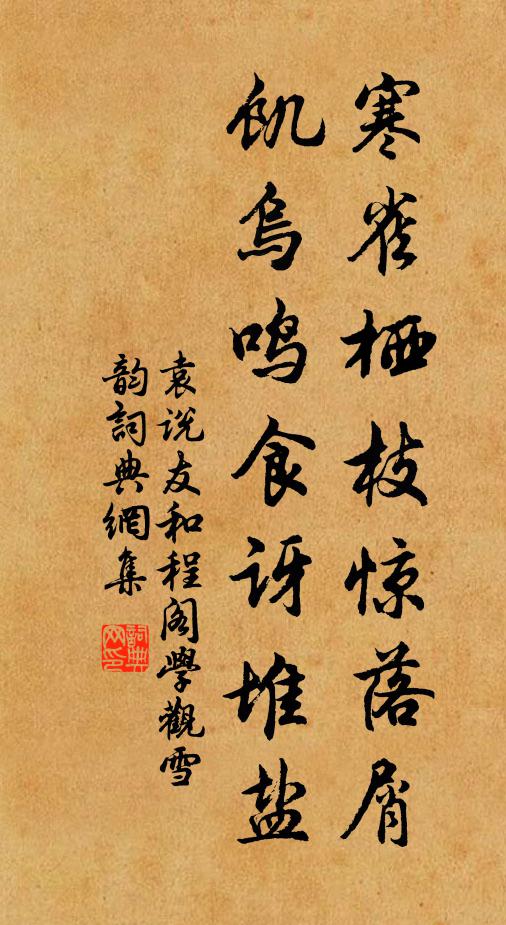 寒雀栖枝惊落屑
饥乌鸣食讶堆盐
袁说友和程阁學觀雪
韵詞典網集
詞典网印